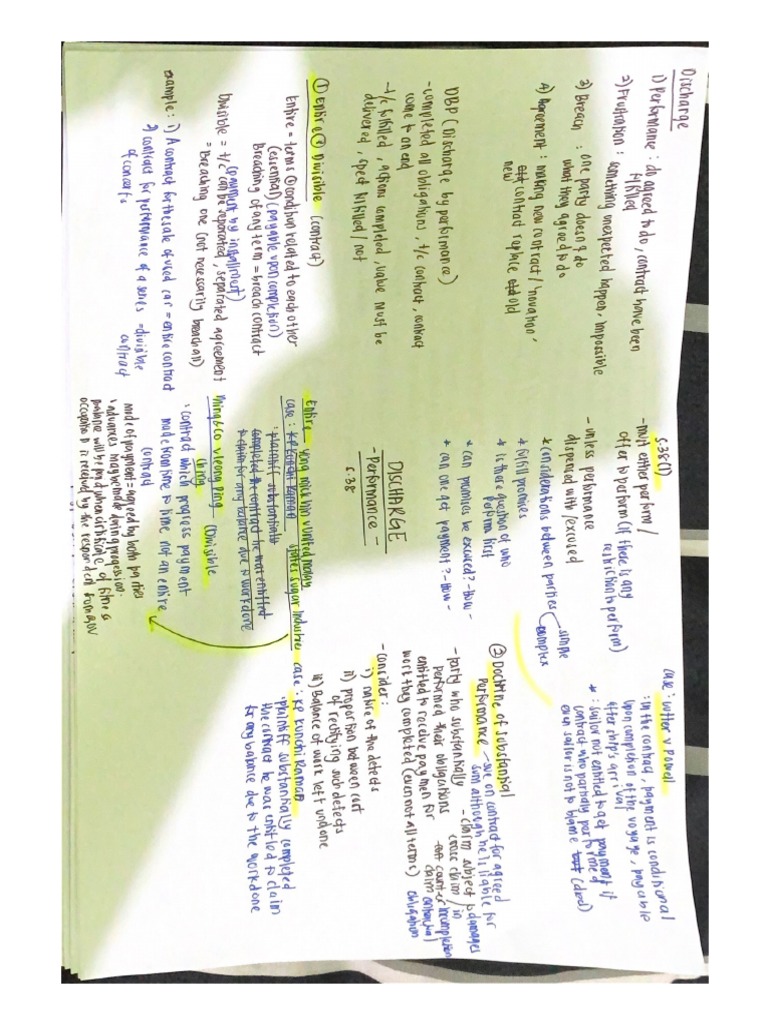 Discharge
1) Performance : do agreed to do, contract have been
fulfilled
2) Frustration : something unexpected happen, impossible
3) Breach : one party doesn't do
what they agreed to do
4) Agreement : making new contract / 'novation',
new contract replace old
DBP (Discharge by performance)
- completed all obligations, t/c contract, contract
come to an end
- t/c fulfilled, actions completed, value must be
delivered, spect fulfilled / not
① Entire & Divisible (contract)
Entire = terms & condition related to each other
(essential) (payable upon completion)
Breaching of any term = breach contract
(payment by installment)
Divisible = t/c can be separated, separated agreement
= Breaching one (not necessarily breach all)
example : 1) A contract for the sale of used car = entire contract
2) contract for performance of a series = divisible
of concerts contract
s.38(1)
- must either perform /
offer to perform (if there is any
restriction to perform)
- unless performance
dispensed with / excused
* considerations between parties simple
complex
* fulfill promises
* is there question of who
perform first
* can promises be excused? - How -
* can one get payment? - How -
DISCHARGE
- Performance -
s.38
Entire Yong Mick Hin v United Malay
States Sugar Industries
case : KP Kunchi Raman
: plaintiff substantially
completed the contract he was entitled
to claim for any balance due to work done
Ming & Co v Leong Ping (Divisible
Ching
: contract which progress payment
made from time to time not an entire
contract
mode of payment = agreed by both parties
: advances may be made during progression:
balance will be paid when certificate of fitness
occupation is received by the respondent from gov
case : cutter v Powell
: in the contract, payment is conditional
upon completion of the voyage, payable
after ship's arrival
* : sailor not entitled to get payment if
contract who partially performed
even sailor is not to blame (died)
② Doctrine of substantial
Performance - sue on contract for agreed
sum although he is liable for
- claim subject to damages
cross claim / in
counter incompletion
claim contractual
obligation
- Party who substantially
performed their obligations
entitled to receive payment for
work they completed (even not all terms)
- consider :
i) nature of the defects
ii) proportion between cost
of rectifying such defects
iii) Balance of work left undone
case : KP Kunchi Raman
: plaintiff substantially completed
the contract he was entitled to claim
for any balance due to the work done